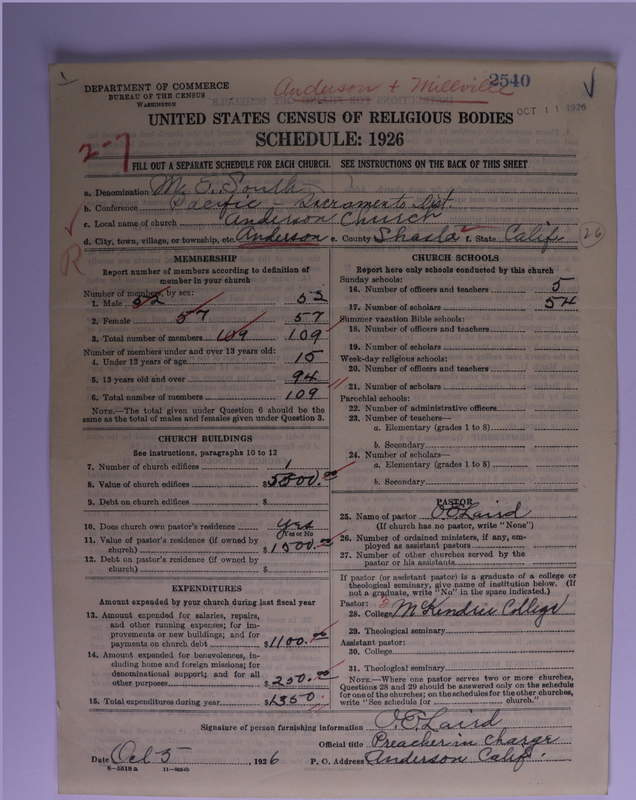 2540
DEPARTMENT OF COMMERCE
BUREAU OF THE CENSUS
WASHINGTON
Anderson + Millville
OCT 11 1926
UNITED STATES CENSUS OF RELIGIOUS BODIES
SCHEDULE: 1926
2-7
FILL OUT A SEPARATE SCHEDULE FOR EACH CHURCH. SEE INSTRUCTIONS ON THE BACK OF THIS SHEET
a. Denomination M. E. South
b. Conference Pacific - Sacramento Dist.
c. Local name of church Anderson Church
d. City, town, village, or township, etc. Anderson e. County Shasta f. State Calif
26
R
MEMBERSHIP
Report number of members according to definition of
member in your church
Number of members, by sex:
1. Male 52 52
2. Female 57 57
3. Total number of members 109 109
Number of members under and over 13 years old:
4. Under 13 years of age 15
5. 13 years old and over 94
6. Total number of members 109
NOTE.—The total given under Question 6 should be the
same as the total of males and females given under Question 3.
CHURCH BUILDINGS
See instructions, paragraphs 10 to 12
7. Number of church edifices 1
8. Value of church edifices $5000.00
9. Debt on church edifices $
10. Does church own pastor's residence Yes
Yes or No
11. Value of pastor's residence (if owned by
church) $1500.00
12. Debt on pastor's residence (if owned by
church) $
EXPENDITURES
Amount expended by your church during last fiscal year
13. Amount expended for salaries, repairs,
and other running expenses; for im-
provements or new buildings; and for
payments on church debt $1100.00
14. Amount expended for benevolences, in-
cluding home and foreign missions; for
denominational support; and for all
other purposes $250.00
15. Total expenditures during year $1350
CHURCH SCHOOLS
Report here only schools conducted by this church
Sunday schools:
16. Number of officers and teachers 5
17. Number of scholars 54
Summer vacation Bible schools:
18. Number of officers and teachers
19. Number of scholars
Week-day religious schools:
20. Number of officers and teachers
21. Number of scholars
Parochial schools:
22. Number of administrative officers
23. Number of teachers—
a. Elementary (grades 1 to 8)
b. Secondary
24. Number of scholars—
a. Elementary (grades 1 to 8)
b. Secondary
PASTOR
25. Name of pastor O. E. Laird
(If church has no pastor, write "None")
26. Number of ordained ministers, if any, em-
ployed as assistant pastors
27. Number of other churches served by the
pastor or his assistants
If pastor (or assistant pastor) is a graduate of a college or
theological seminary, give name of institution below. (If
not a graduate, write "No" in the space indicated.)
Pastor: 3
28. College McKendree College
29. Theological seminary
Assistant pastor:
30. College
31. Theological seminary
NOTE.—Where one pastor serves two or more churches,
Questions 28 and 29 should be answered only on the schedule
for one of the churches; on the schedules for the other churches,
write "See schedule for church."
Signature of person furnishing information O. E. Laird
Official title Preacher in charge
Date Oct 5, 1926 P. O. Address Anderson Calif.
8-5518a 11-9064b